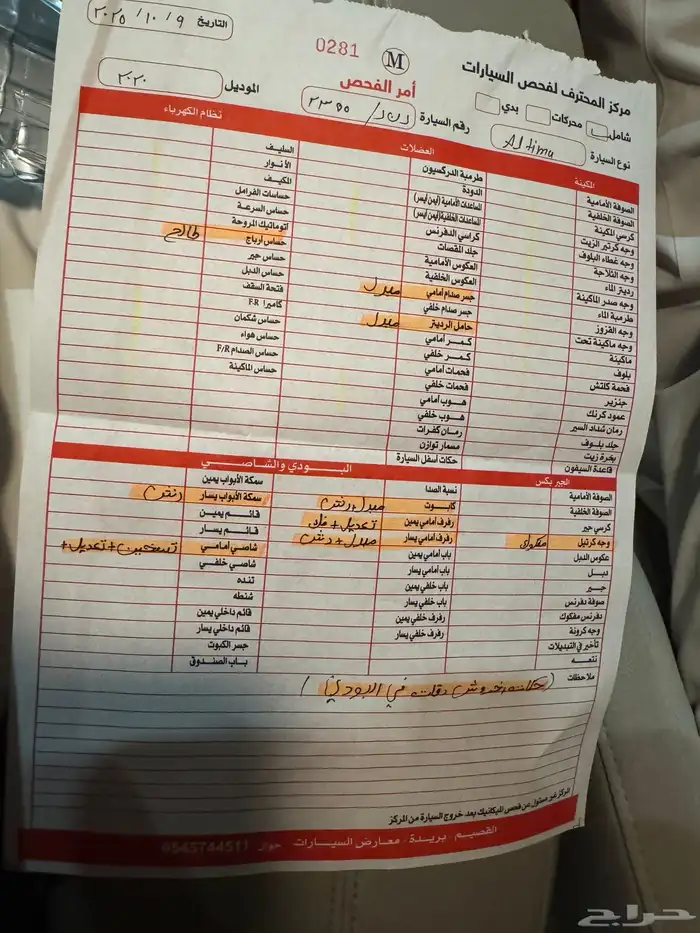 مركز المحترف لفحص السيارات
M
0281
التاريخ ٢٠٢٥/١٠/٩
شامل محركات بدي
أمر الفحص
نوع السيارة Altima
رقم السيارة
الموديل ٢٠٢٠
المكينة
الصوفة الأمامية
الصوفة الخلفية
كرسي المكينة
وجه كرتير الزيت
وجه غطاء البلوف
وجه الثلاجة
رديتر الماء
وجه صدر الماكينة
طرمبة الماء
وجه القزوز
وجه ماكينة تحت
ماكينة
بلوف
فحمة كلتش
جنزير
عمود كرنك
رمان شداد السير
جلد بلوف
بخرة زيت
قاعدة السيفون
العضلات
طرمبة الدركسيون
الدودة
المساعدات الأمامية (أيمن أيسر)
المساعدات الخلفية (أيمن أيسر)
كراسي الدفرنس
جلد المقصات
العكوس الأمامية
العكوس الخلفية
جسر صدام أمامي مبدل
جسر صدام خلفي
حامل الرديتر مبدل
كمر أمامي
كمر خلفي
فحمات أمامي
فحمات خلفي
هوب أمامي
هوب خلفي
رمان كفرات
مسمار توازن
حكات أسفل السيارة
نظام الكهرباء
السليف
الأنوار
المكيف
حساسات الفرامل
حساس السرعة
أتوماتيك المروحة
حساس ارباج طالح
حساس جير
حساس الدبل
فتحة السقف
كاميرا F.R
حساس شكمان
حساس هواء
حساس الصدام F/R
حساس الماكينة
الجير بكس
الصوفة الأمامية
الصوفة الخلفية
كرسي جير
وجه كرتيل مفكوك
عكوس الدبل
دبل
جير
صوفة دفرنس
دفرنس مفكوك
وجه كرونة
تأخير في التبديلات
نتعه
البودي والشاصي
نسبة الصدا
كابوت مبدل + رنش
رفرف أمامي يمين تعديل + فك
رفرف أمامي يسار مبدل + رنش
باب أمامي يمين
باب أمامي يسار
باب خلفي يمين
باب خلفي يسار
رفرف خلفي يمين
رفرف خلفي يسار
سمكة الأبواب يمين
سمكة الأبواب يسار رنش
قائم يمين
قائم يسار
شاصي أمامي تسخين + تعديل +
شاصي خلفي
تنده
شنطه
قائم داخلي يمين
قائم داخلي يسار
جسر الكبوت
باب الصندوق
ملاحظات
(حكات وخدوش دقات في البودي)
المركز غير مسئول عن فحص الميكانيك بعد خروج السيارة من المركز
القصيم - بريدة - معارض السيارات جوال 0545744511
حراج